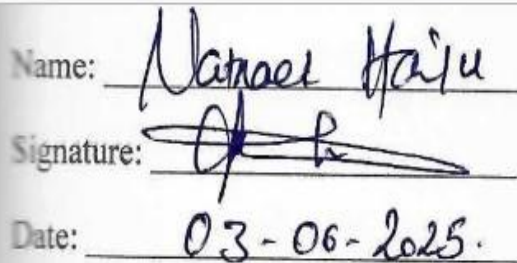 Name: Natnael Hailu
Signature:
Date: 03-06-2025.